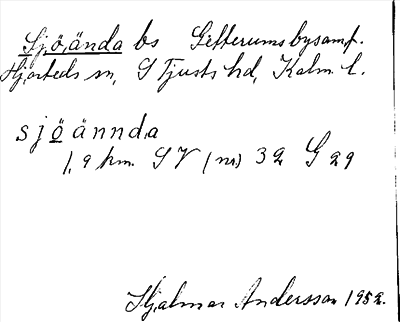 Sjöända bs Sifferumsbysamf.
Hjorteds sn, S Tjusts hd, Kalm. l.
sjöännda
1,9 km. SV (nr) 32 G 29
Hjalmar Andersson 1952.